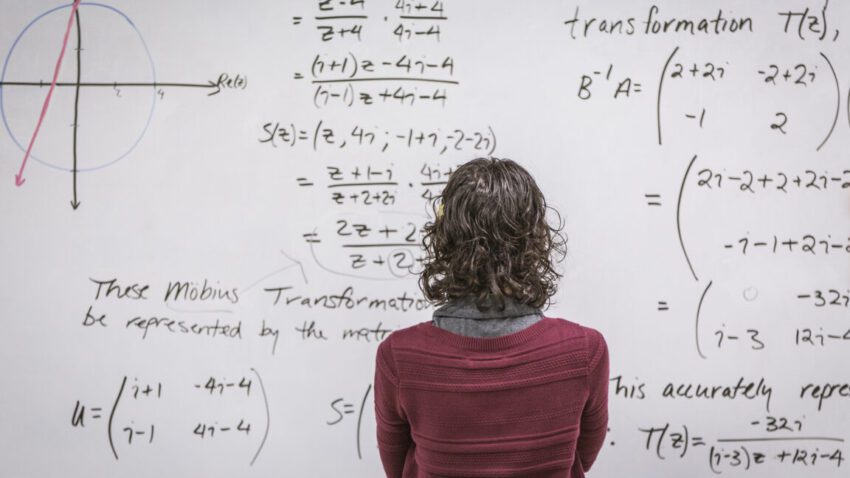 Re(z)
2 4
= z-4/z+4 · 4i+4/4i-4
= (i+1)z-4i-4/(i-1)z+4i-4
S(z)=(z, 4i; -1+i, -2-2i)
= z+1-i/z+2+2i · 4i+
= 2z+2/z+2
These Möbius Transformatio
be represented by the matri
U= (i+1 -4i-4
i-1 4i-4)
S= (
transformation T(z),
B⁻¹A= (2+2i -2+2i
-1 2)
= (2i-2+2+2i-2
-i-1+2i-2
= ( 0 -32i
i-3 12i-4
This accurately repre
: T(z)= -32i/(i-3)z+12i-4